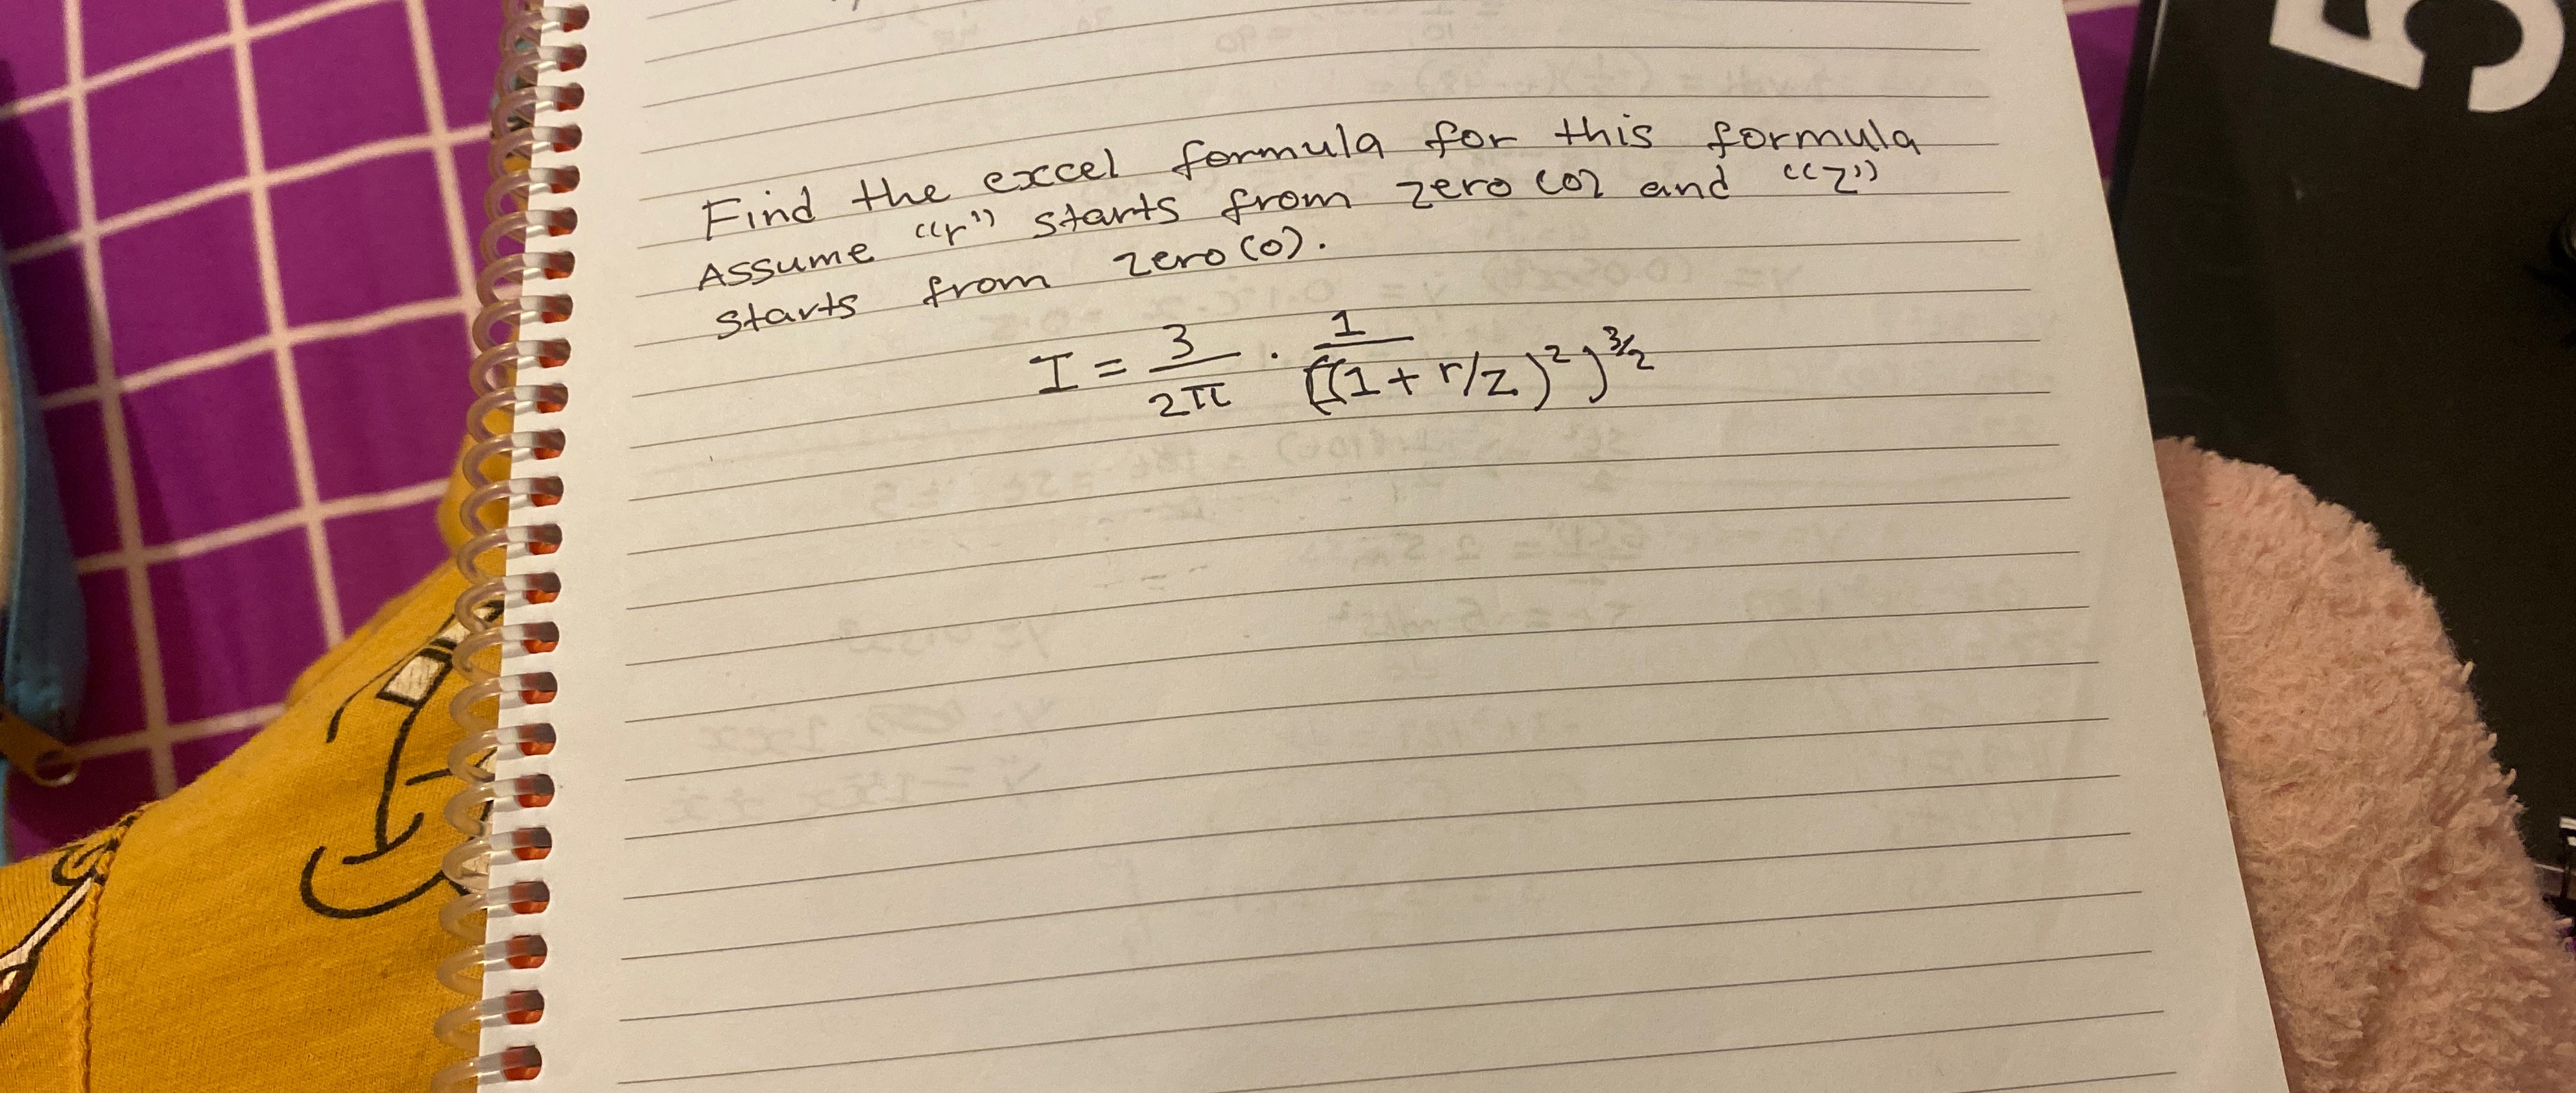 Find the excel formula for this formula
Assume "r" starts from zero (0) and "z"
starts from zero (0).
I = 3/2π · 1/((1 + r/z)²)^3/2
5